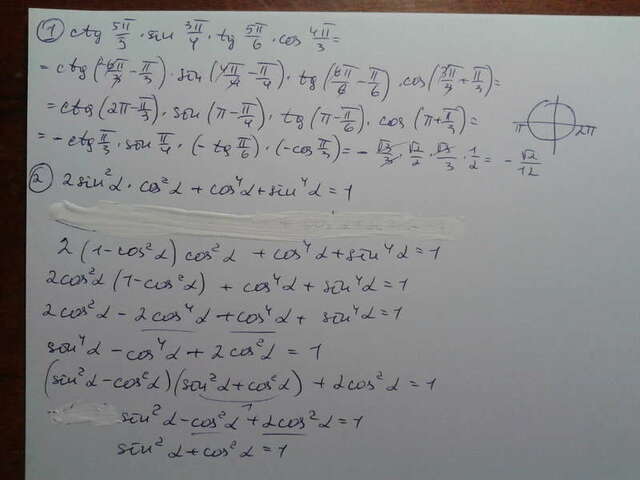 ① ctg 5π/3 · sin 3π/4 · tg 5π/6 · cos 4π/3 =
= ctg(6π/3 - π/3) · sin(4π/4 - π/4) · tg(6π/6 - π/6) · cos(3π/3 + π/3) =
= ctg(2π - π/3) · sin(π - π/4) · tg(π - π/6) · cos(π + π/3) =
= - ctg π/3 · sin π/4 · (- tg π/6) · (- cos π/3) = - √3/3 · √2/2 · √3/3 · 1/2 = - √2/12
π 2π
② 2sin²α · cos²α + cos⁴α + sin⁴α = 1
2(1 - cos²α) cos²α + cos⁴α + sin⁴α = 1
2cos²α (1 - cos²α) + cos⁴α + sin⁴α = 1
2cos²α - 2cos⁴α + cos⁴α + sin⁴α = 1
sin⁴α - cos⁴α + 2cos²α = 1
(sin²α - cos²α)(sin²α + cos²α) + 2cos²α = 1
1
sin²α - cos²α + 2cos²α = 1
sin²α + cos²α = 1